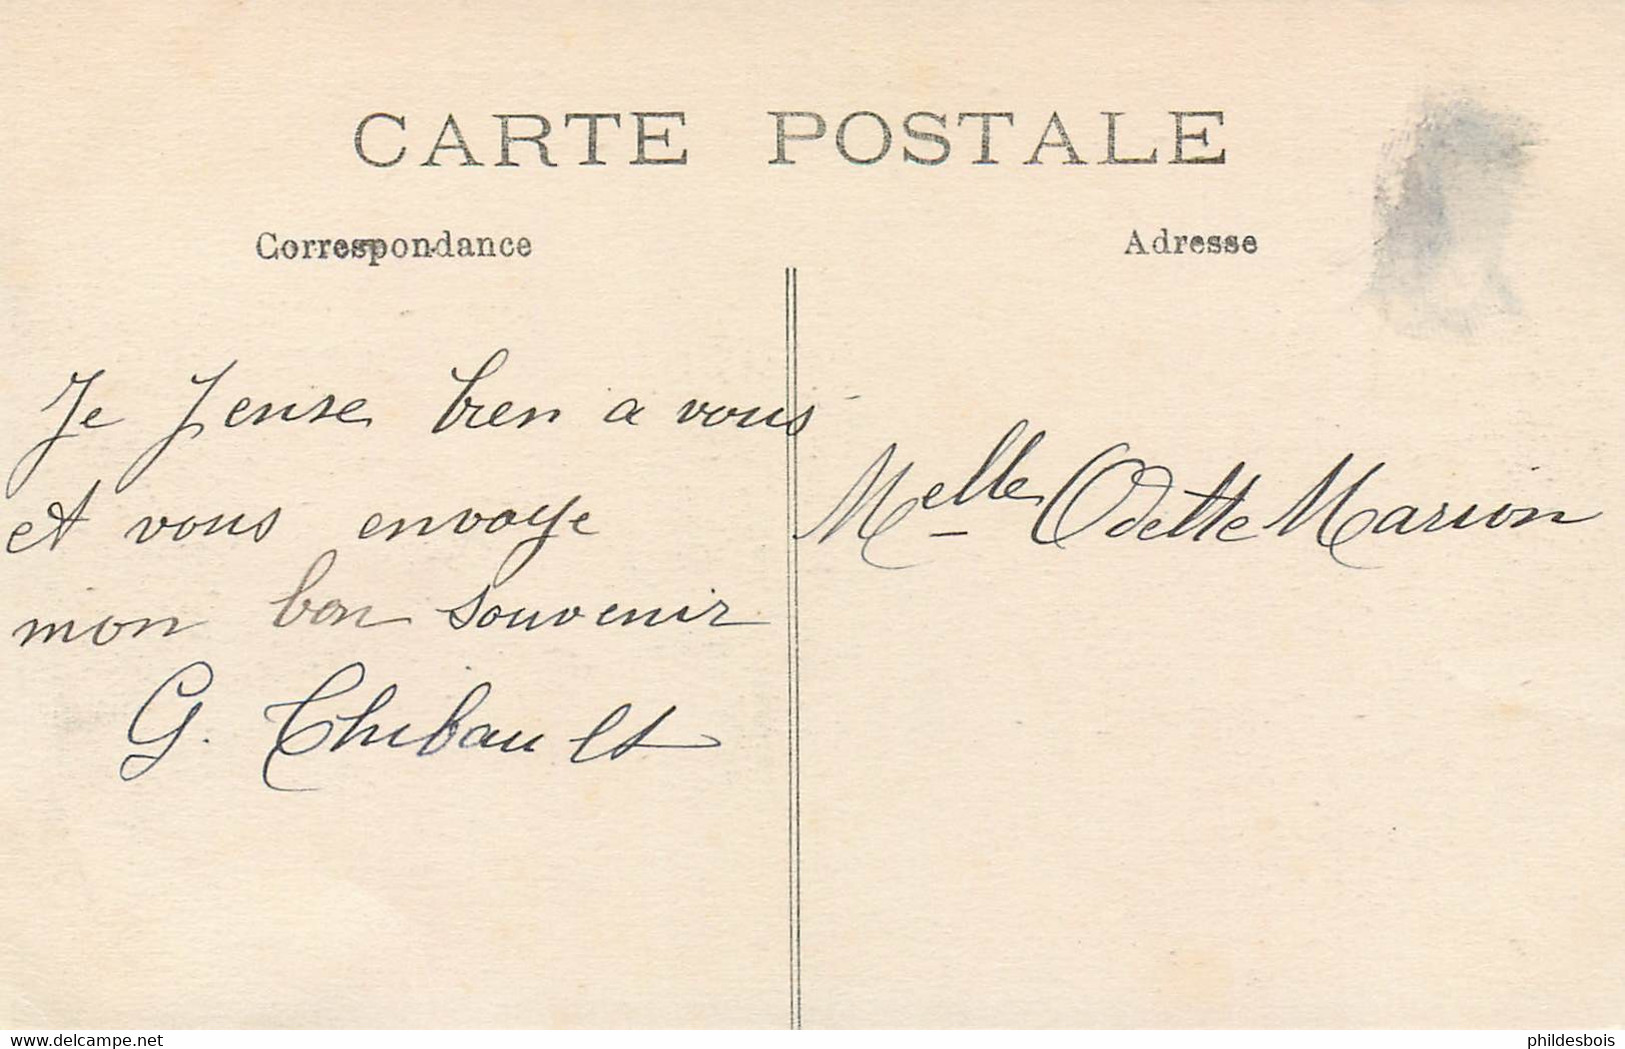 CARTE POSTALE
Correspondance
Adresse
Je pense bien a vous
et vous envoye
mon bon souvenir
G. Thibault
Melle Odette Marion
delcampe.net
phildesbois